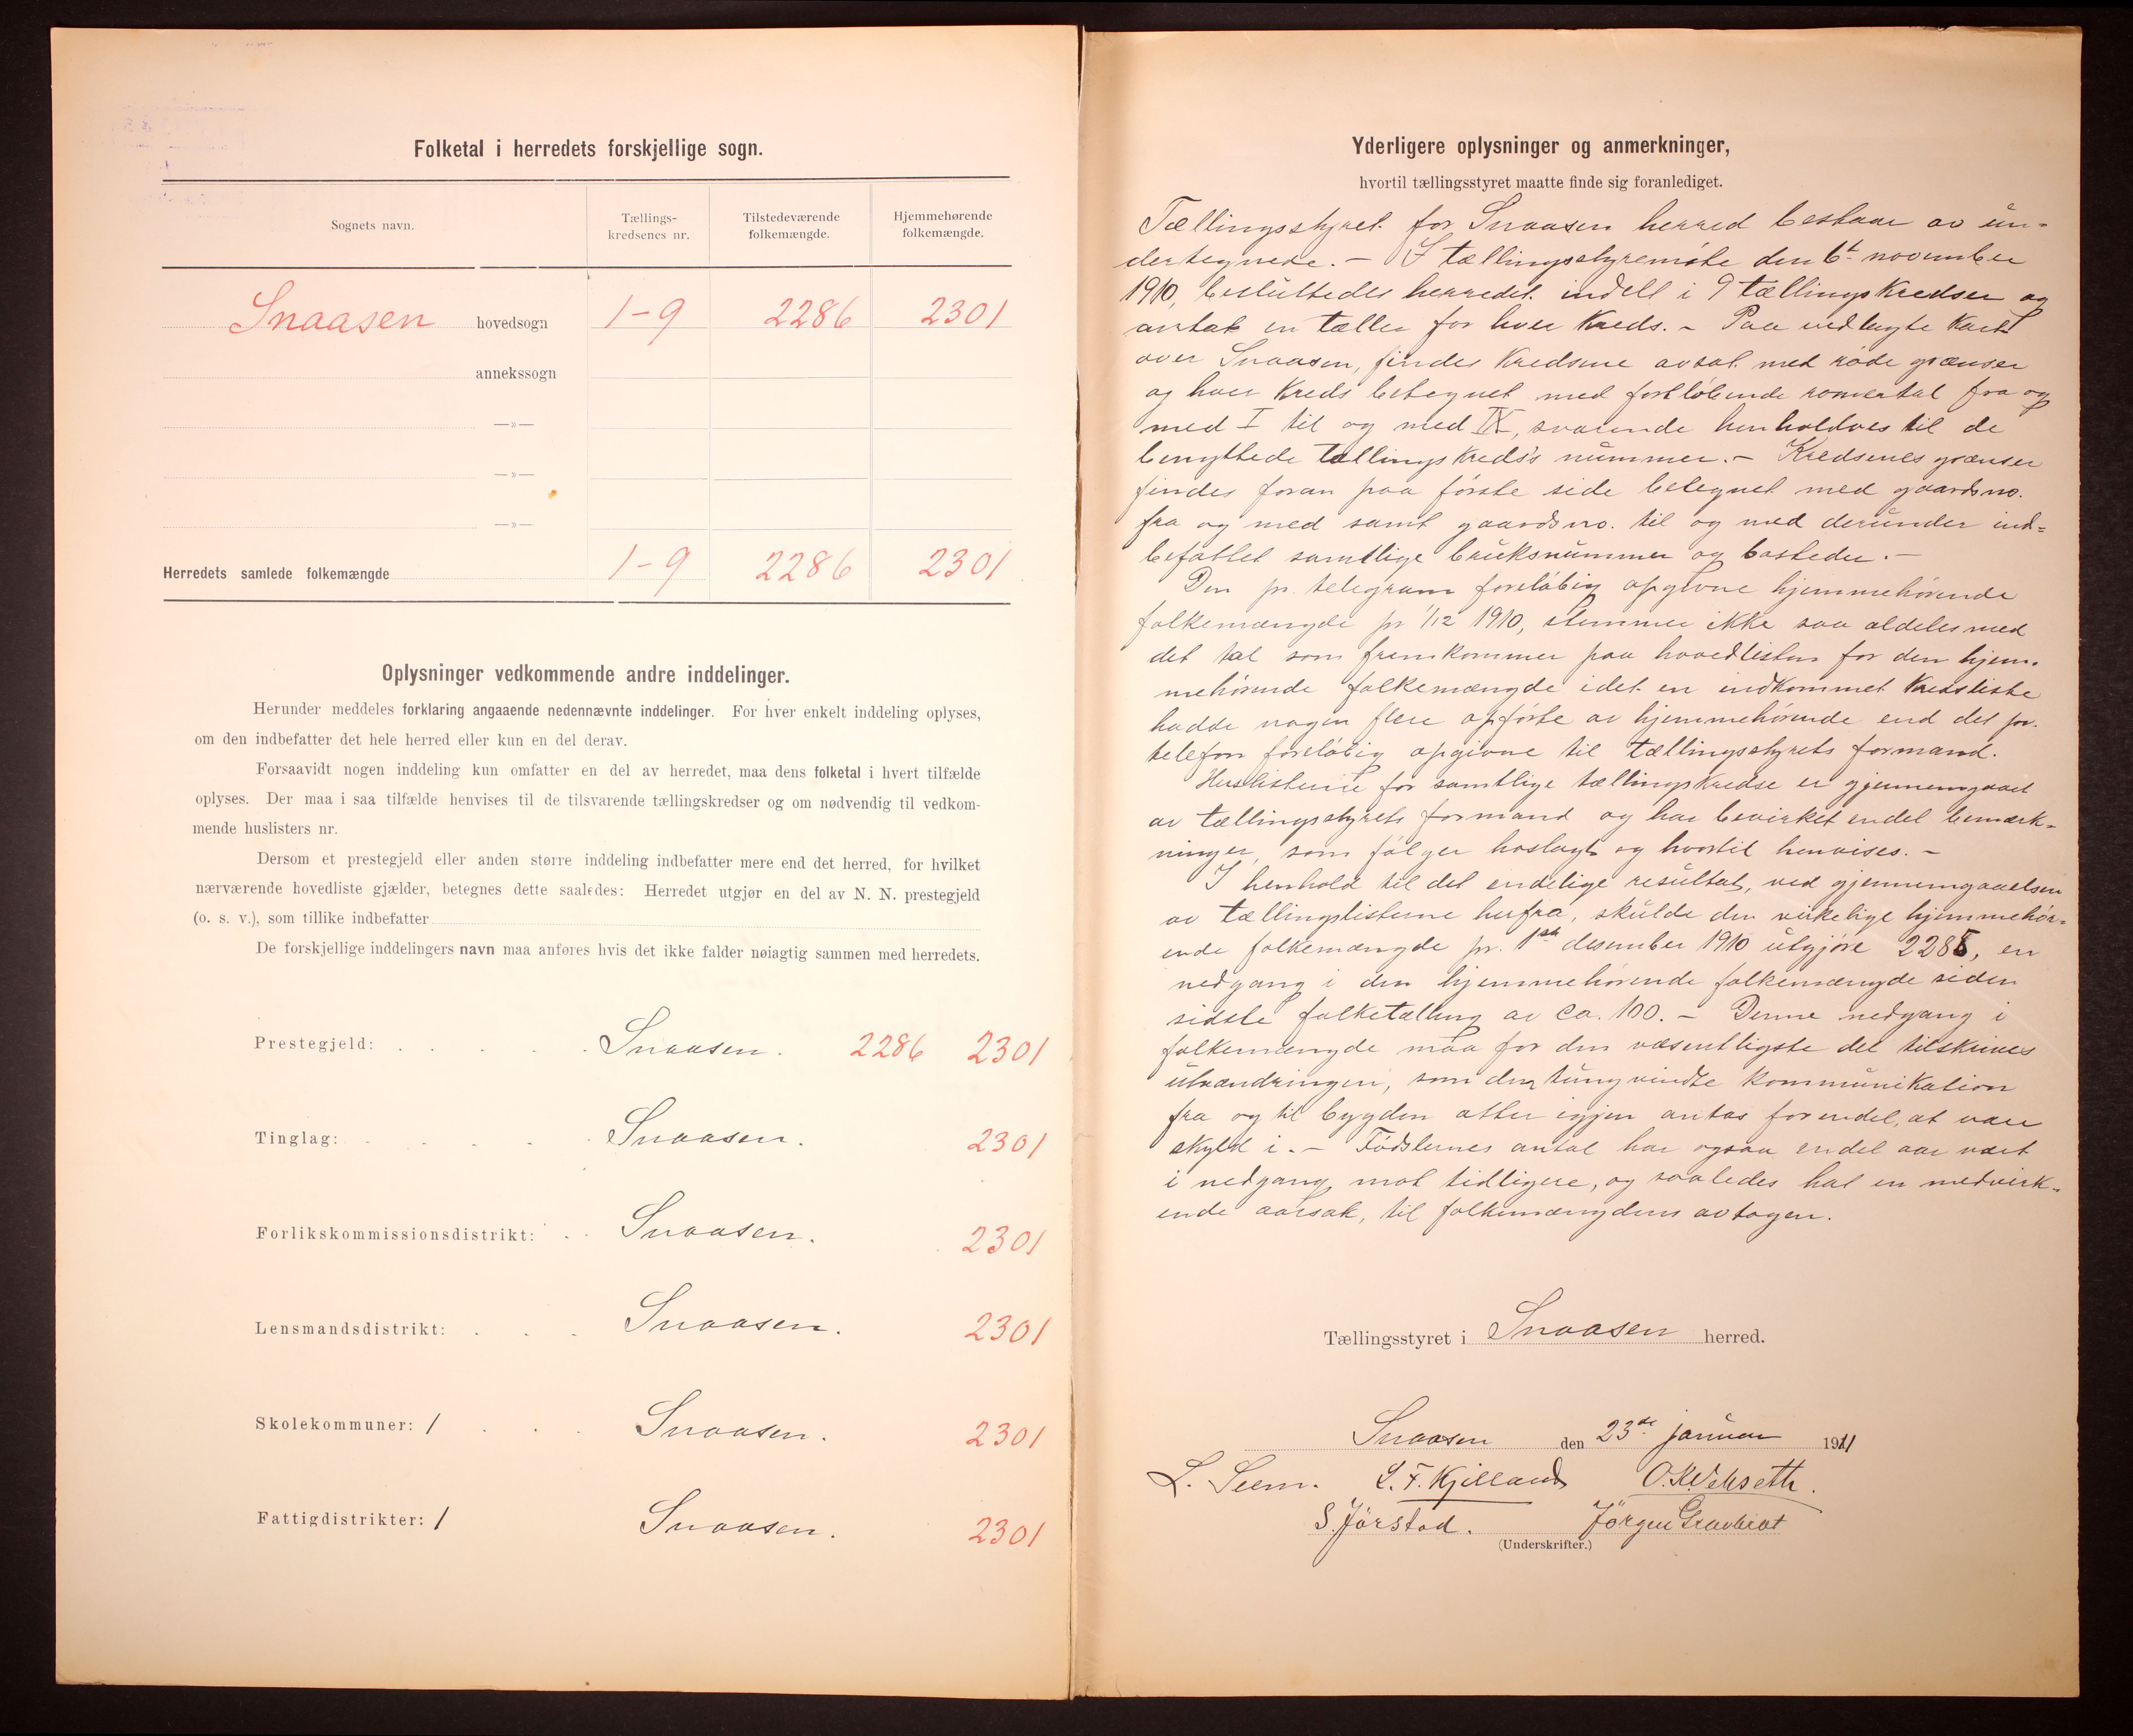 Folketal i herredets forskjellige sogn.
Sognets navn.
Tællings-
kredsenes nr.
Tilstedeværende
folkemængde.
Hjemmehørende
folkemængde.
Snaasen hovedsogn 1-9 2286 2301
annekssogn
—»—
—»—
—»—
Herredets samlede folkemængde 1-9 2286 2301
Oplysninger vedkommende andre inddelinger.
Herunder meddeles forklaring angaaende nedennævnte inddelinger. For hver enkelt inddeling oplyses,
om den indbefatter det hele herred eller kun en del derav.
Forsaavidt nogen inddeling kun omfatter en del av herredet, maa dens folketal i hvert tilfælde
oplyses. Der maa i saa tilfælde henvises til de tilsvarende tællingskredser og om nødvendig til vedkom-
mende huslisters nr.
Dersom et prestegjeld eller anden større inddeling indbefatter mere end det herred, for hvilket
nærværende hovedliste gjælder, betegnes dette saaledes: Herredet utgjør en del av N. N. prestegjeld
(o. s. v.), som tillike indbefatter
De forskjellige inddelingers navn maa anføres hvis det ikke falder nøiagtig sammen med herredets.
Prestegjeld: Snaasen. 2286 2301
Tinglag: Snaasen. 2301
Forlikskommissionsdistrikt: Snaasen. 2301
Lensmandsdistrikt: Snaasen. 2301
Skolekommuner: 1 Snaasen. 2301
Fattigdistrikter: 1 Snaasen. 2301
Yderligere oplysninger og anmerkninger,
hvortil tællingsstyret maatte finde sig foranlediget.
Tællingsstyret for Snaasen herred bestaar av un=
dertegnede. — I tællingsstyremøte den 6t november
1910, besluttedes herredet indelt i 9 tællingskredser og
antak en tæller for hver kreds. – Paa vedlagte kart
over Snaasen, findes kredsene avsat med røde grænser
og hver kreds betegnet med fortløbende romertal fra og
med I til og med IX, svarende henholdves til de
benyttede tællingskreds's nummer. – Kredsenes grænser
findes foran paa første side betegnet med gaardsno.
fra og med samt gaardsno. til og med derunder ind=
befattet samtlige bruksnummer og bosteder. —
Den pr. telegram foreløbig opgivne hjemmehørende
folkemængde pr 1/12 1910, stemmer ikke saa aldeles med
det tal som fremkommer paa hovedlisten for den hjem-
mehørende folkemængde idet en indkommet kredsliste
hadde nogen flere opførte av hjemmehørende end det pr.
telefon foreløbig opgivne til tællingsstyrets formand.
Huslisterne for samtlige tællingskredse er gjennemgaaet
av tællingsstyrets formand og har bevirket endel bemærk-
ninger, som følger hoslagt og hvortil henvises. –
I henhold til det endelige resultat, ved gjennemgaaelsen
av tællingslisterne herfra, skulde den virkelige hjemmehør=
ende folkemængde pr. 1st desember 1910 utgjøre 2285, en
nedgang i den hjemmehørende folkemængde siden
sidste folketælling av ca. 100. – Denne nedgang i
folkemængde maa for den væsentligste del tilskrives
utvandringen, som den tungvindte kommunikation
fra og til bygden atter igjen antas for endel, at være
skyld i. – Fødslernes antal har ogsaa endel aar vært
i nedgang mot tidligere, og saaledes hat en medvirk-
ende aarsak, til folkemængdens avtagen.
Tællingsstyret i Snaasen herred.
Snaasen den 23de januar 1911
L. Seem. L. F. Kjelland O. K. Vekseth.
S. Jørstad. Jørgen
(Underskrifter.)